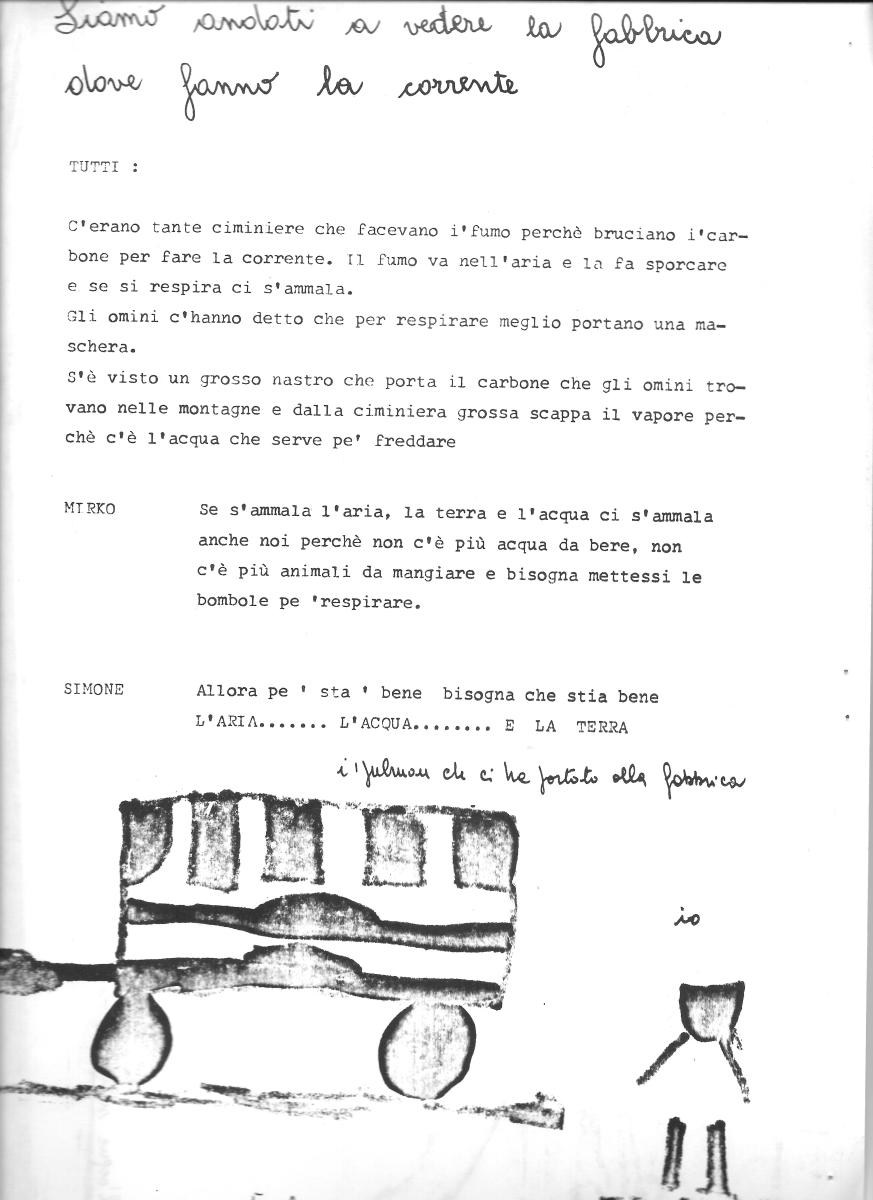 Siamo andati a vedere la fabbrica
dove fanno la corrente
TUTTI :
C'erano tante ciminiere che facevano i'fumo perchè bruciano i'car-
bone per fare la corrente. Il fumo va nell'aria e la fa sporcare
e se si respira ci s'ammala.
Gli omini c'hanno detto che per respirare meglio portano una ma-
schera.
S'è visto un grosso nastro che porta il carbone che gli omini tro-
vano nelle montagne e dalla ciminiera grossa scappa il vapore per-
chè c'è l'acqua che serve pe' freddare
MIRKO Se s'ammala l'aria, la terra e l'acqua ci s'ammala
anche noi perchè non c'è più acqua da bere, non
c'è più animali da mangiare e bisogna mettessi le
bombole pe 'respirare.
SIMONE Allora pe ' sta ' bene bisogna che stia bene
L'ARIA....... L'ACQUA........ E LA TERRA
i'pulman che ci ha portato alla fabbrica
io